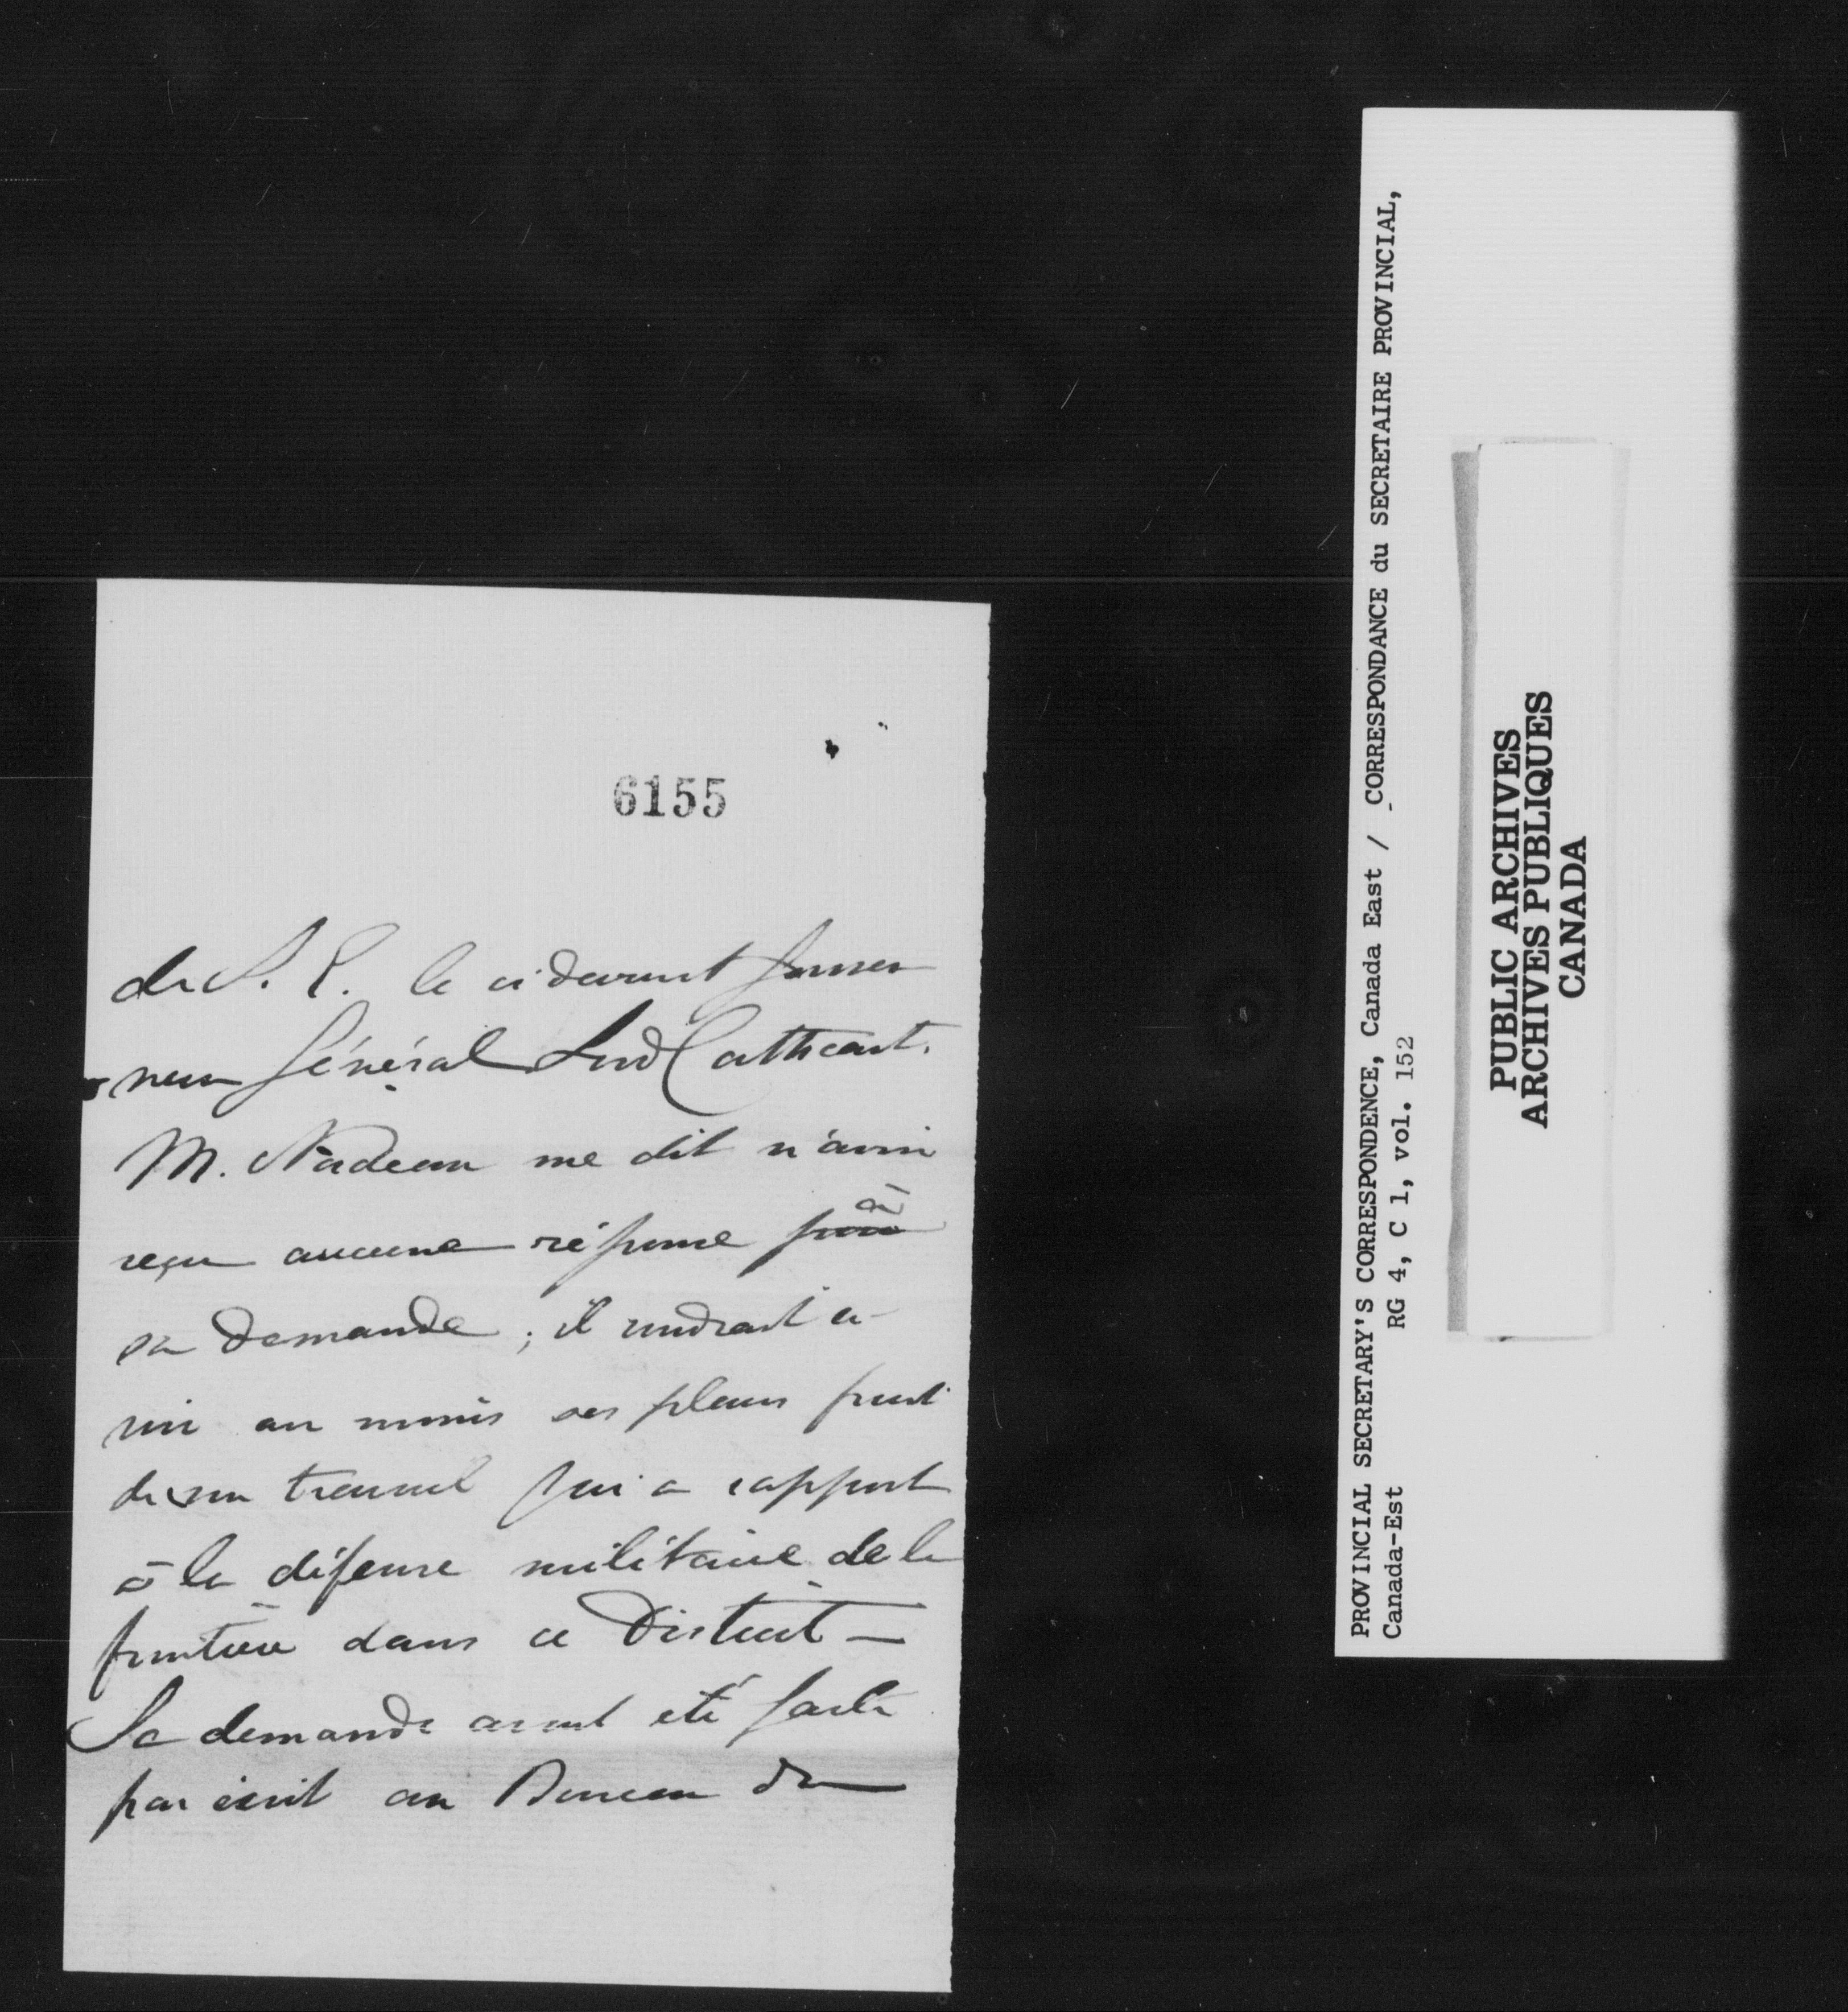 6155
de S. E. le ci devant Gouver
neur Général Lord Cathcart.
M. Nadeau me dit n'avoir
reçu aucune réponse à
sa demande ; il voudrait a-
voir au moins ses plans fruit
de son travail qui a rapport
à la défense militaire de la
frontière dans ce District —
Sa demande avait été faite
par écrit au Bureau du
PROVINCIAL SECRETARY'S CORRESPONDENCE, Canada East / CORRESPONDANCE du SECRETAIRE PROVINCIAL,
Canada-Est RG 4, C 1, vol. 152
PUBLIC ARCHIVES
ARCHIVES PUBLIQUES
CANADA